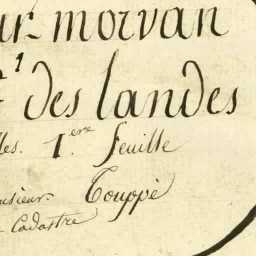 ur-morvan
t¹ des landes
les. 1.ere feuille
nsieur. Touppé
Cadastre